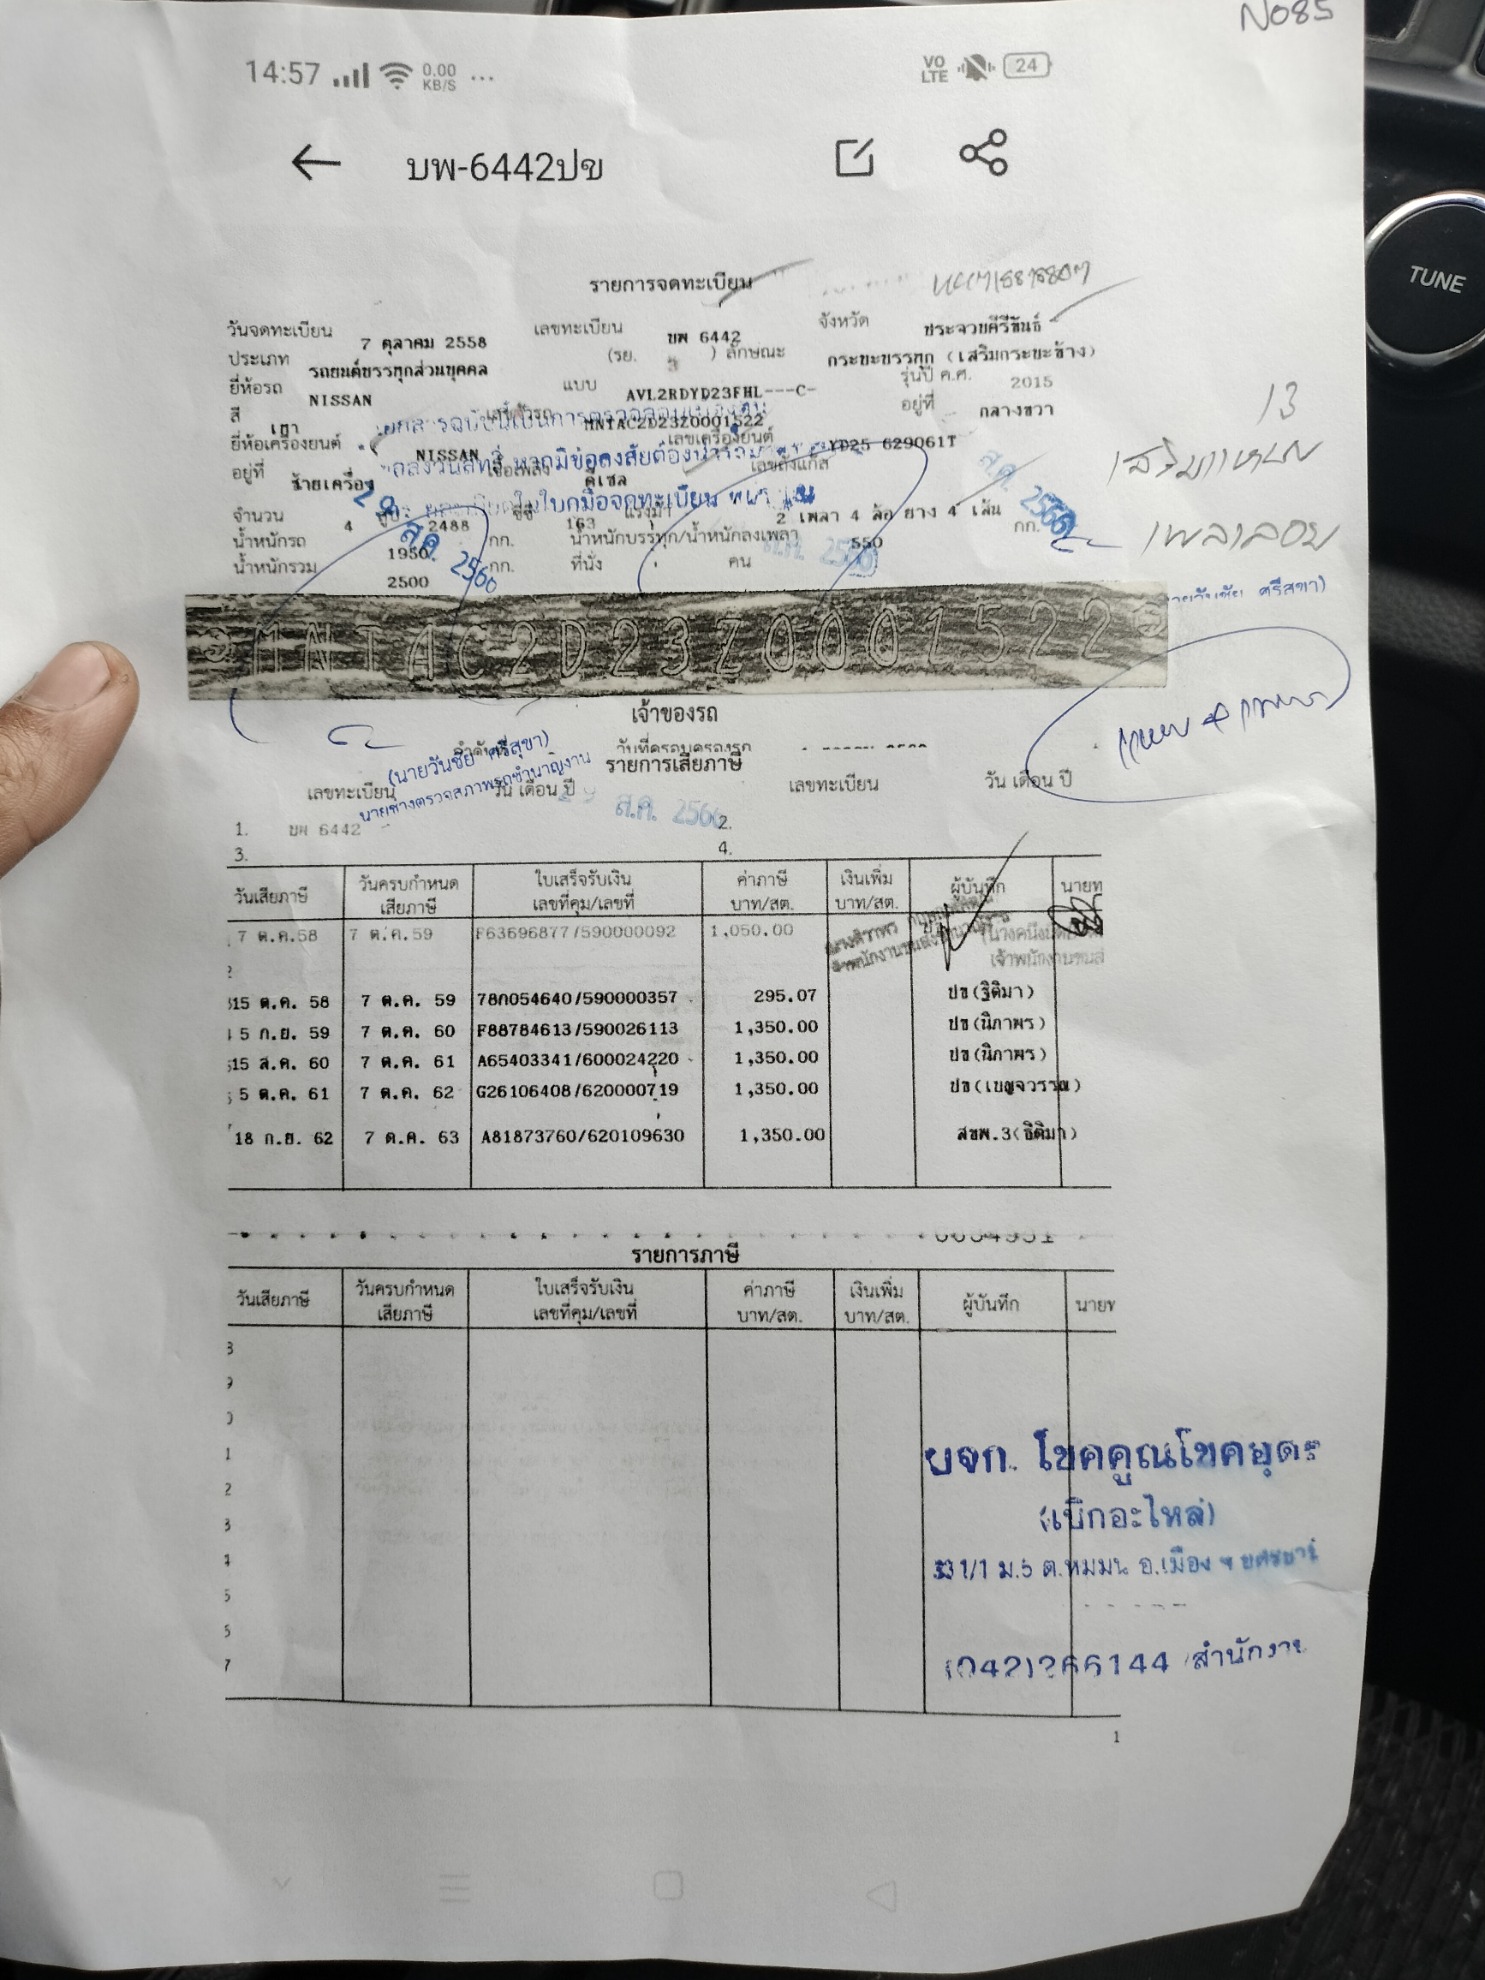 N085
14:57 0.00 KB/S ... VO LTE 24
บพ-6442ปข
รายการจดทะเบียน
วันจดทะเบียน 7 ตุลาคม 2558 เลขทะเบียน บพ 6442 จังหวัด ประจวบคีรีขันธ์
ประเภท รถยนต์บรรทุกส่วนบุคคล (รย. 3 ) ลักษณะ กระบะบรรทุก (เสริมกระบะข้าง)
ยี่ห้อรถ NISSAN แบบ AVL2RDYD23FHL---C- รุ่นปี ค.ศ. 2015
สี เทา MNTAC2D23Z0001522 อยู่ที่ กลางขวา
ยี่ห้อเครื่องยนต์ NISSAN เลขเครื่องยนต์ YD25 629061T
อยู่ที่ ซ้ายเครื่อง ดีเซล เลขถังแก๊ส
จำนวน 4 สูบ 2488 ซีซี 163 แรงม้า 2 เพลา 4 ล้อ ยาง 4 เส้น
น้ำหนักรถ 1950 กก. น้ำหนักบรรทุก/น้ำหนักลงเพลา 550 กก.
น้ำหนักรวม 2500 กก. ที่นั่ง คน
13
เพลาลอย
29 ส.ค. 2566
ส.ค. 2566
MNTAC2D23Z0001522
เจ้าของรถ
(นายวันชัย ศรีสุขา)
นายช่างตรวจสภาพรถชำนาญงาน
29 ส.ค. 2566
รายการเสียภาษี
เลขทะเบียน วัน เดือน ปี เลขทะเบียน วัน เดือน ปี
1. บพ 6442 2.
3. 4.
วันเสียภาษี วันครบกำหนดเสียภาษี ใบเสร็จรับเงิน เลขที่คุม/เลขที่ ค่าภาษี บาท/สต. เงินเพิ่ม บาท/สต. ผู้บันทึก นายท
7 ต.ค.58 7 ต.ค.59 F63696877/590000092 1,050.00
2
15 ต.ค. 58 7 ต.ค. 59 78ก054640/590000357 295.07 ปข(ฐิติมา)
5 ก.ย. 59 7 ต.ค. 60 F88784613/590026113 1,350.00 ปข(นิภาพร)
15 ส.ค. 60 7 ต.ค. 61 A65403341/600024220 1,350.00 ปข(นิภาพร)
5 ต.ค. 61 7 ต.ค. 62 G26106408/620000719 1,350.00 ปข(เบญจวรรณ)
18 ก.ย. 62 7 ต.ค. 63 A81873760/620109630 1,350.00 สขพ.3(ธิติมา)
รายการภาษี
วันเสียภาษี วันครบกำหนดเสียภาษี ใบเสร็จรับเงิน เลขที่คุม/เลขที่ ค่าภาษี บาท/สต. เงินเพิ่ม บาท/สต. ผู้บันทึก นายท
8
9
0
1
2
3
4
5
6
7
โชคคูณโชคอุดร
(เบิกอะไหล่)
1/1 ม.5 อ.เมือง
(042)266144 สำนักงาน
1
TUNE